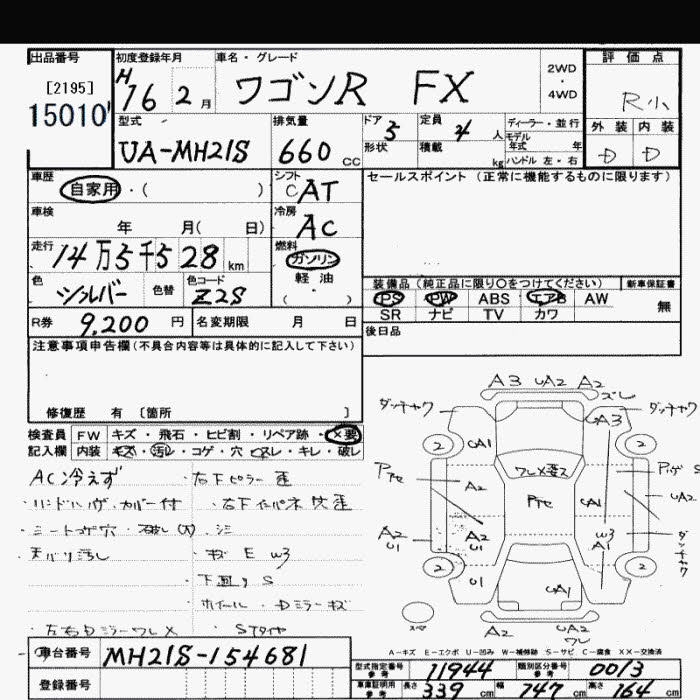 出品番号 初度登録年月 車名・グレード 2WD・4WD 評価点
[2195]
15010 H16 2月 ワゴンR FX R小
型式 排気量 ドア 5 定員 4人 ディーラー・並行 外装 内装
モデル年式 年
UA-MH21S 660cc 形状 積載 kg ハンドル 左・右 D D
車歴 シフト セールスポイント (正常に機能するものに限ります)
自家用・( ) CAT
車検 冷房
年 月(日) AC
走行 燃料
14万5千528km ガソリン
色 色替 色コード 軽油
シルバー Z2S ( )
装備品(純正品に限り〇をつけてください) 新車保証書
PS PW ABS エアB AW 無
SR ナビ TV カワ
R券 9,200円 名変期限 月 日 後日品
注意事項申告欄(不具合内容等は具体的に記入して下さい)
修復歴 有 [箇所 ]
検査員 FW キズ・飛石・ヒビ割・リペア跡・×要
記入欄 内装 キズ・汚レ・コゲ・穴・ヌレ・キレ・破レ
AC冷えず 右下ピラー歪
ハンドルハゲ、カバー付 右下インパネ穴歪
シートコゲ穴・破レ(大)・シミ
天バリ汚し キズ E W3
下回りS
ホイール・Dミラーキズ
左右DミラーワレX Sタイヤ
A3 UA2 A2
ズレ
ダッチャク A3 ダッチャク
2 UA1 2
ワレX要ス
A2 Pアセ UA1 UA2
A2 U1 A2 U1 W3 A1
2 U1 UA1 2
UA2
ワレ
A-キズ E-エクボ U-凹み W-補修跡 S-サビ C-腐食 XX-交換済
車台番号 MH21S-154681 型式指定番号 参考 11944 類別区分番号 参考 0013
登録番号 車庫証明用 参考 長さ 339cm 幅 147cm 高さ 164cm